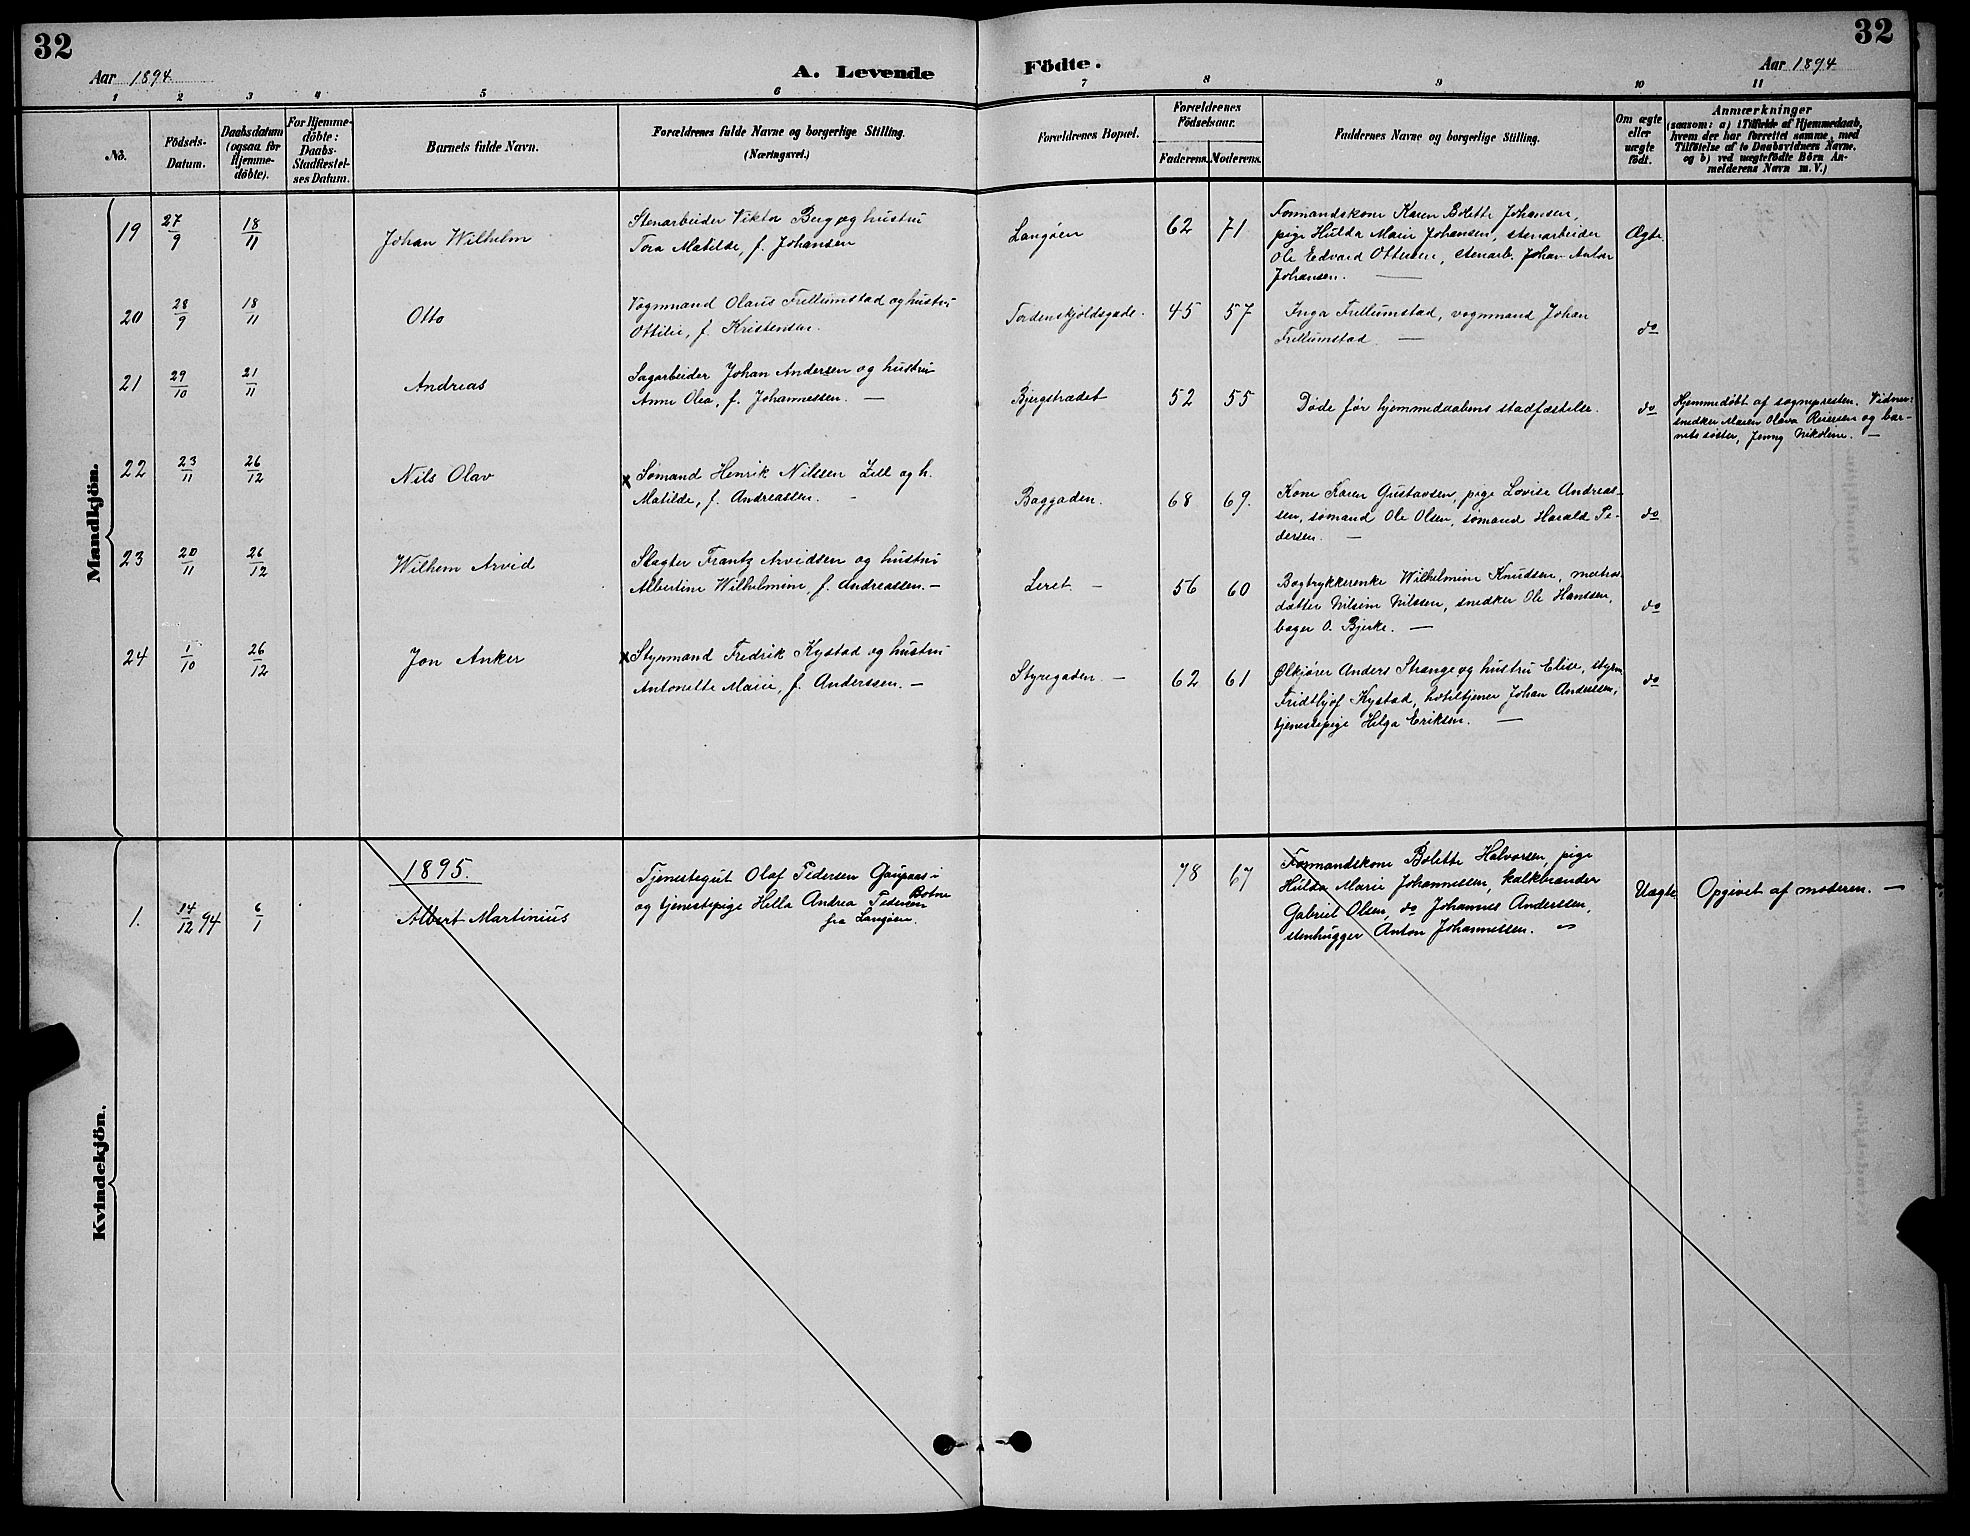 32
32
Aar 1894
A. Levende
Födte.
Aar 1894
1
2
3
4
5
6
7
8
9
10
11
No.
Födsels-
Datum.
Daabsdatum
(ogsaa for
Hjemme-
döbte).
For Hjemme-
döbte:
Daabs-
Stadfæstel-
ses Datum.
Barnets fulde Navn.
Forældrenes fulde Navne og borgerlige Stilling.
(Næringsvei.)
Forældrenes Bopæl.
Forældrenes
Födselsaar.
Faderens.
Moderens.
Faddernes Navne og borgerlige Stilling.
Om ægte
eller
uægte
födt.
Anmærkninger
(saasom: a) i Tilfælde af Hjemmedaab,
hvem der har forrettet samme, med
Tilföielse af to Daabsvidners Navne,
og b) ved uægtefödte Börn An-
melderens Navn m. V.)
Mandkjön.
19
27/9
18/11
Johan Wilhelm
Stenarbeider Viktor Berg og hustru
Tora Matilde, f. Johansen
Langøen
62
71
Formandskone Karen Bolette Johansen,
pige Hulda Marie Johansen, stenarbeider
Ole Edvard Ottersen, stenarb. Johan Anton
Johansen. —
Ægte
20
28/9
18/11
Otto
Vognmand Olaus Trellumstad og hustru
Ottilie, f. Kristensen.
Tordenskjoldsgade.
45
57
Inga Trellumstad, vognmand Johan
Trellumstad. —
do
21
29/10
21/11
Andreas
Sagarbeider Johan Andersen og hustru
Anne Olea, f. Johannessen. —
Bjergstrædet
52
55
Døde før hjemmedaabens stadfæstelse.
do
Hjemmedøbt af sognepresten. Vidner:
snedker Maren Olava Reiersen og bar-
nets søster, Jenny Nikoline. —
22
23/11
26/12
Nils Olav
x Sømand Henrik Nilssen Zill og h.
Matilde, f. Andreassen. -
Baggaden.
68
69.
Kone Karen Gustavsen, pige Lovise Andreas-
sen, sømand Ole Olsen, sømand Harald Pe-
dersen. —
do
23
20/11
26/12
Wilhem Arvid
Slagter Frantz Arvidsen og hustru
Albertine Wilhelmine, f. Andreassen. —
Leret. —
56
60
Bogtrykkerenke Wilhelmine Knudsen,
datter Nilsine Nilssen, snedker Ole Hanssen,
bager O. Bjerke. —
do
24
1/10
26/12
Jon Anker
x Styrmand Fredrik Kystad og hustru
Antonette Marie, f. Anderssen. —
Styregaden. —
62
61
Ølkjører Anders Strange og hustru Elise, styrm
Fridthjof Kystad, hoteltjener Johan Andersen,
tjenestepige Helga Eriksen. —
do
Kvindekjön.
1895.
1.
14/12 94
6/1
Albert Martinius
Tjenestegut Olaf Pedersen Gaupaas i
Botne
og tjenestepige Hella Andrea Pedersen
fra Langøen.
78
67
Formandskone Bolette Halvorsen, pige
Hulda Marie Johannessen, kalkbrænder
Gabriel Olsen, do Johannes Anderssen,
stenhugger Anton Johannessen.
Uægte
Opgivet af moderen. —